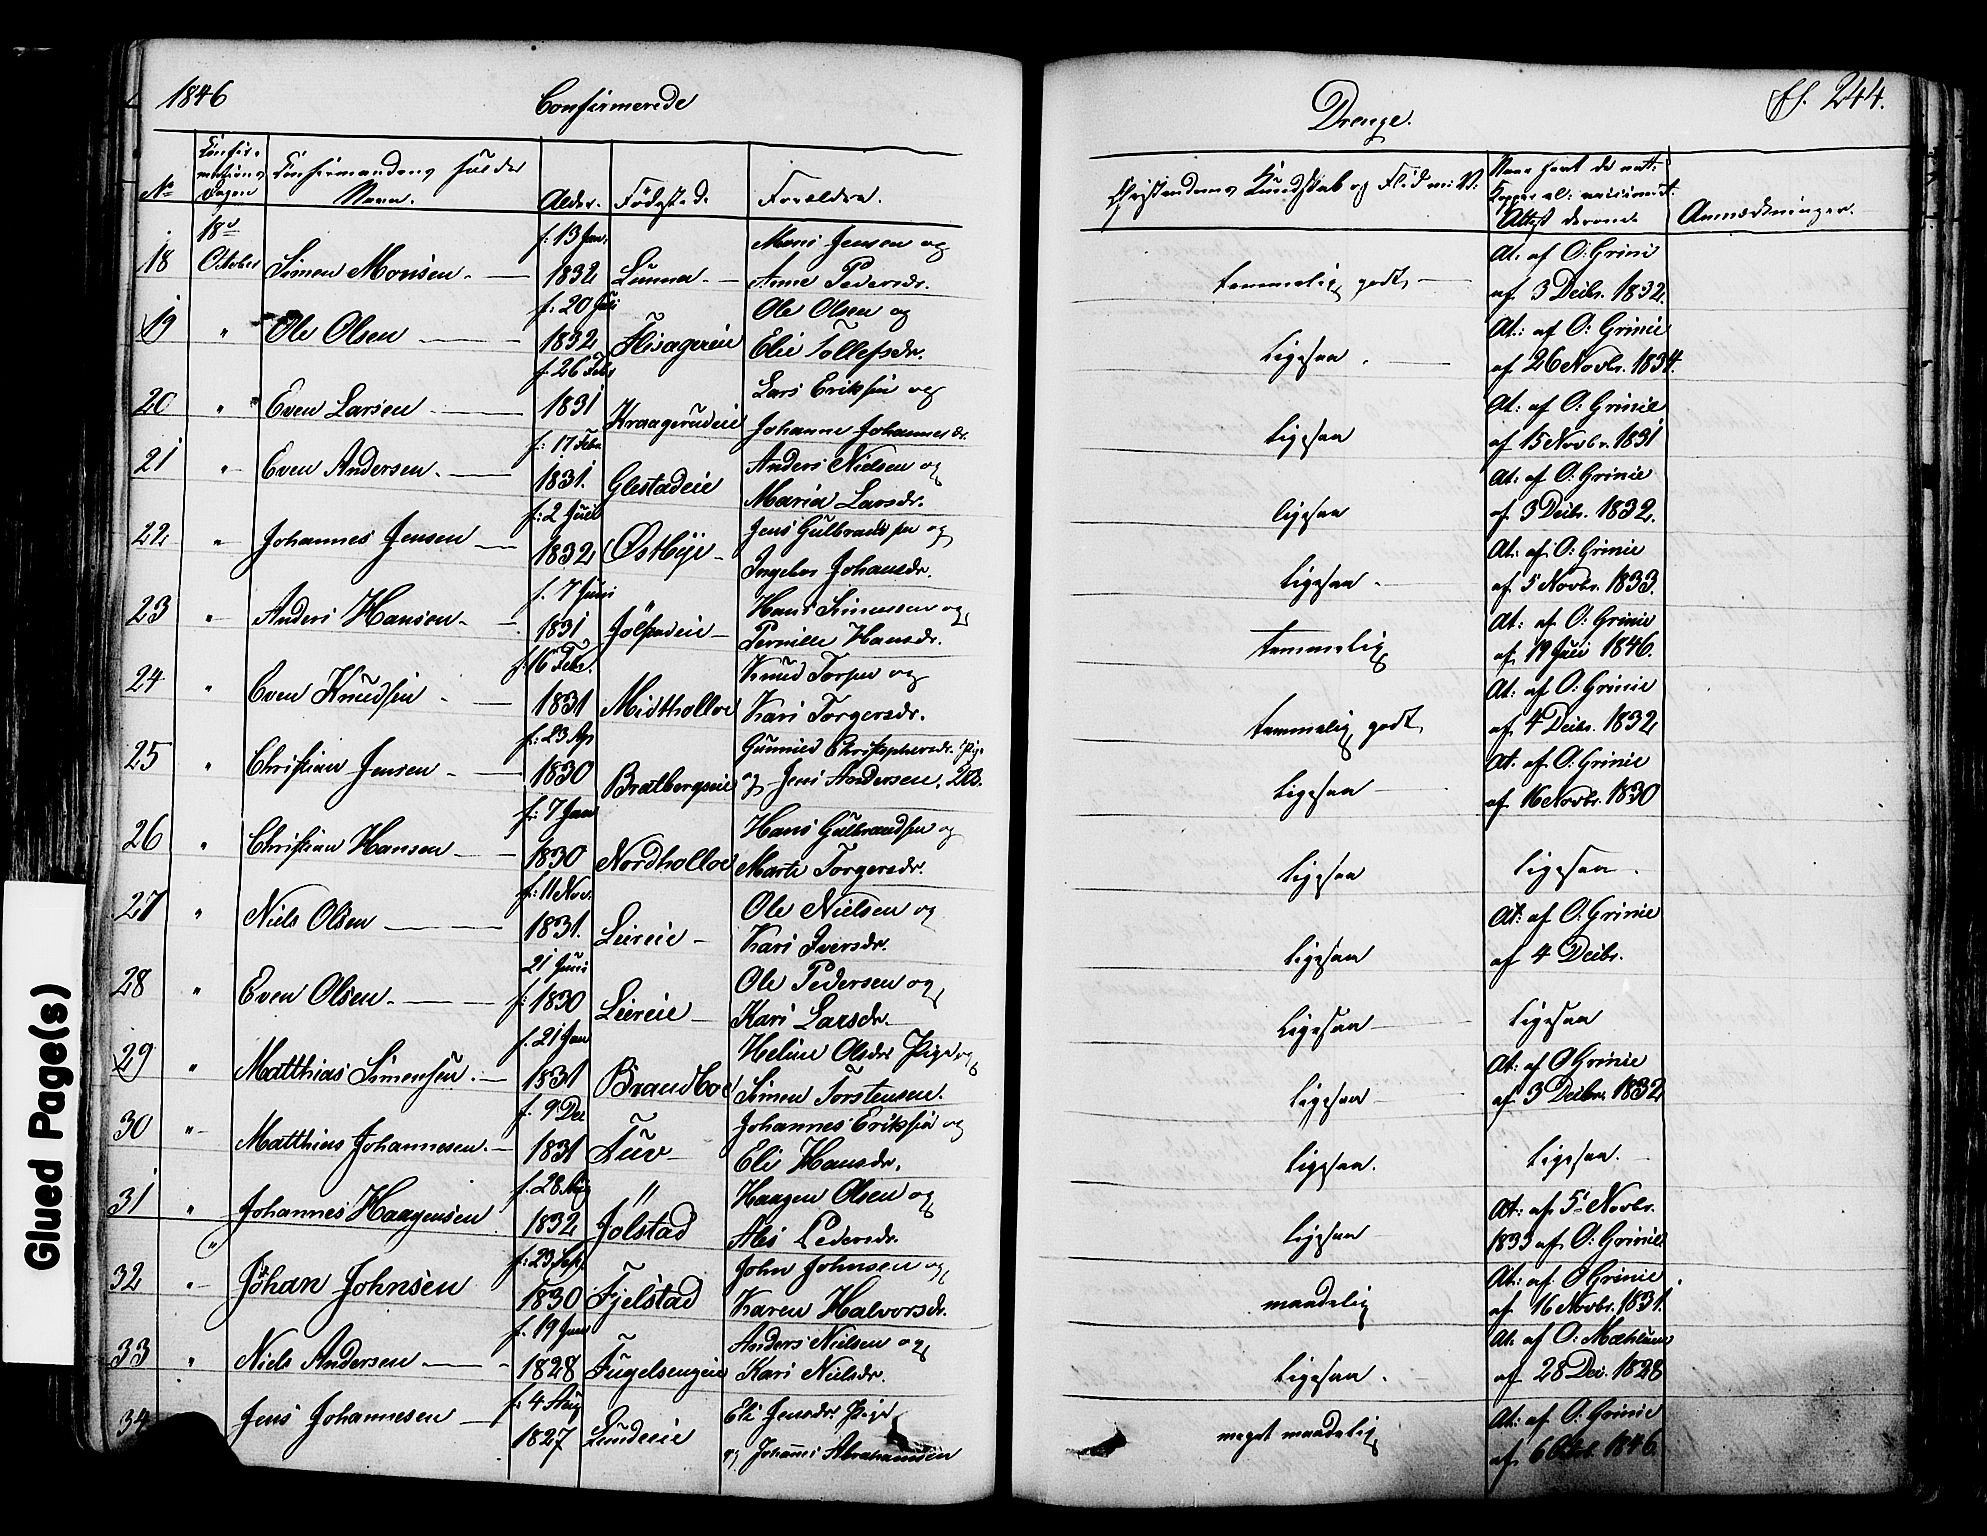 1846 Confirmerede
Drenge. fl. 244.
No Confir- mations Dagen Confirmandens fulde Navn. Alder. Födested. Forældre. Christendoms Kundskab og Flid m: v: Naar havt de natt: Kopper el: vaccineret. Attest derom Anmærkninger.
18de f: 13 Jan. Mons Jensen og At. af O: Grinie
18 October Simen Monsen. 1832 Lunna. Anne Pedersdr. temmelig godt af 3 Decbr. 1832.
f. 20 Juli Ole Olsen og At: af O: Grinie
19 " Ole Olsen 1832 Flisageeie Elie Tollefsdr. ligesaa. af 26 Novbr. 1834.
f. 26 Febr Lars Eriksen og At: af O: Grinie
20 " Even Larsen 1831 Kraagerudeie Johanne Johannesdr. ligesaa af 15 Novbr. 1831
f: 17 Febr. Anders Nielsen og At. af O: Grinie
21 " Even Andersen. 1831. Glestadeie Maria Larsdr. ligesaa af 3 Decbr. 1832.
f: 2 Juli Jens Gulbrandsen og At: af O: Grinie
22 " Johannes Jensen 1832 Østbye Ingebor Johansdr. ligesaa. af 5 Novbr. 1833.
f. 7 Juni Hans Simensen og At: af O: Grinie
23 " Anders Hansen. 1831 Jölstadeie Pernille Hansdr. temmelig af 19 Juli 1846.
f. 16 Febr. Knud Torsen og At: af O: Grinie
24 " Even Knudsen 1831 Midtholloe Kari Torgersdr. temmelig godt af 4 Decbr. 1832
f: 23 Ap Gunnild Christophersdr. Pige At. af O: Grinie
25 " Christian Jensen 1830 Bratbergseie og Jens Andersen, ligesaa af 16 Novbr. 1830
f: 7 Jan Hans Gulbrandsen og
26 " Christian Hansen 1830 Nordholloe Marte Torgersdr. ligesaa ligesaa.
f: 11 Nov. Ole Nielsen og At: af O: Grinie
27 " Niels Olsen 1831. Leireie Kari Iversdr. ligesaa af 4 Decbr.
21 Juni Ole Pedersen og
28 " Even Olsen. f: 1830 Leireie Kari Larsdr. ligesaa ligesaa
f. 21 Jan Heline Olsdr Pige og At: af O Grinie
29 " Matthias Simensen. 1831 Brandboe Simen Torstensen. ligesaa af 3 Decbr. 1832
f. 9 Dec Johannes Eriksen og
30 " Matthias Johannesen. 1831 Tuv Eli Hansdr. ligesaa. ligesaa.
f. 28 Aug " Haagen Olsen og At: af 5 Novbr.
31 " Johannes Haagensen 1832 Jolstad Alis Pedersdr. ligesaa 1833 af O: Grinie
f: 23 Sept. John Johnsen og At: af O Grinie
32 " Johan Johnsen 1830 Fjelstad Karen Halvorsdr. maadelig af 16 Novbr. 1831.
f. 19 Jun Anders Nielsen og At. af O: Mæhlum
33 " Niels Andersen 1828 Fugelsengeie Kari Nielsdr. ligesaa. af 28 Dec. 1828
f: 4 Aug Eli Jensdr Pige At: af O: Grinie
34 Jens Johannesen 1827 Lundeeie og Johannes Abrahamsen meget maadelig af 6 Octbr. 1846
Glued Page(s)